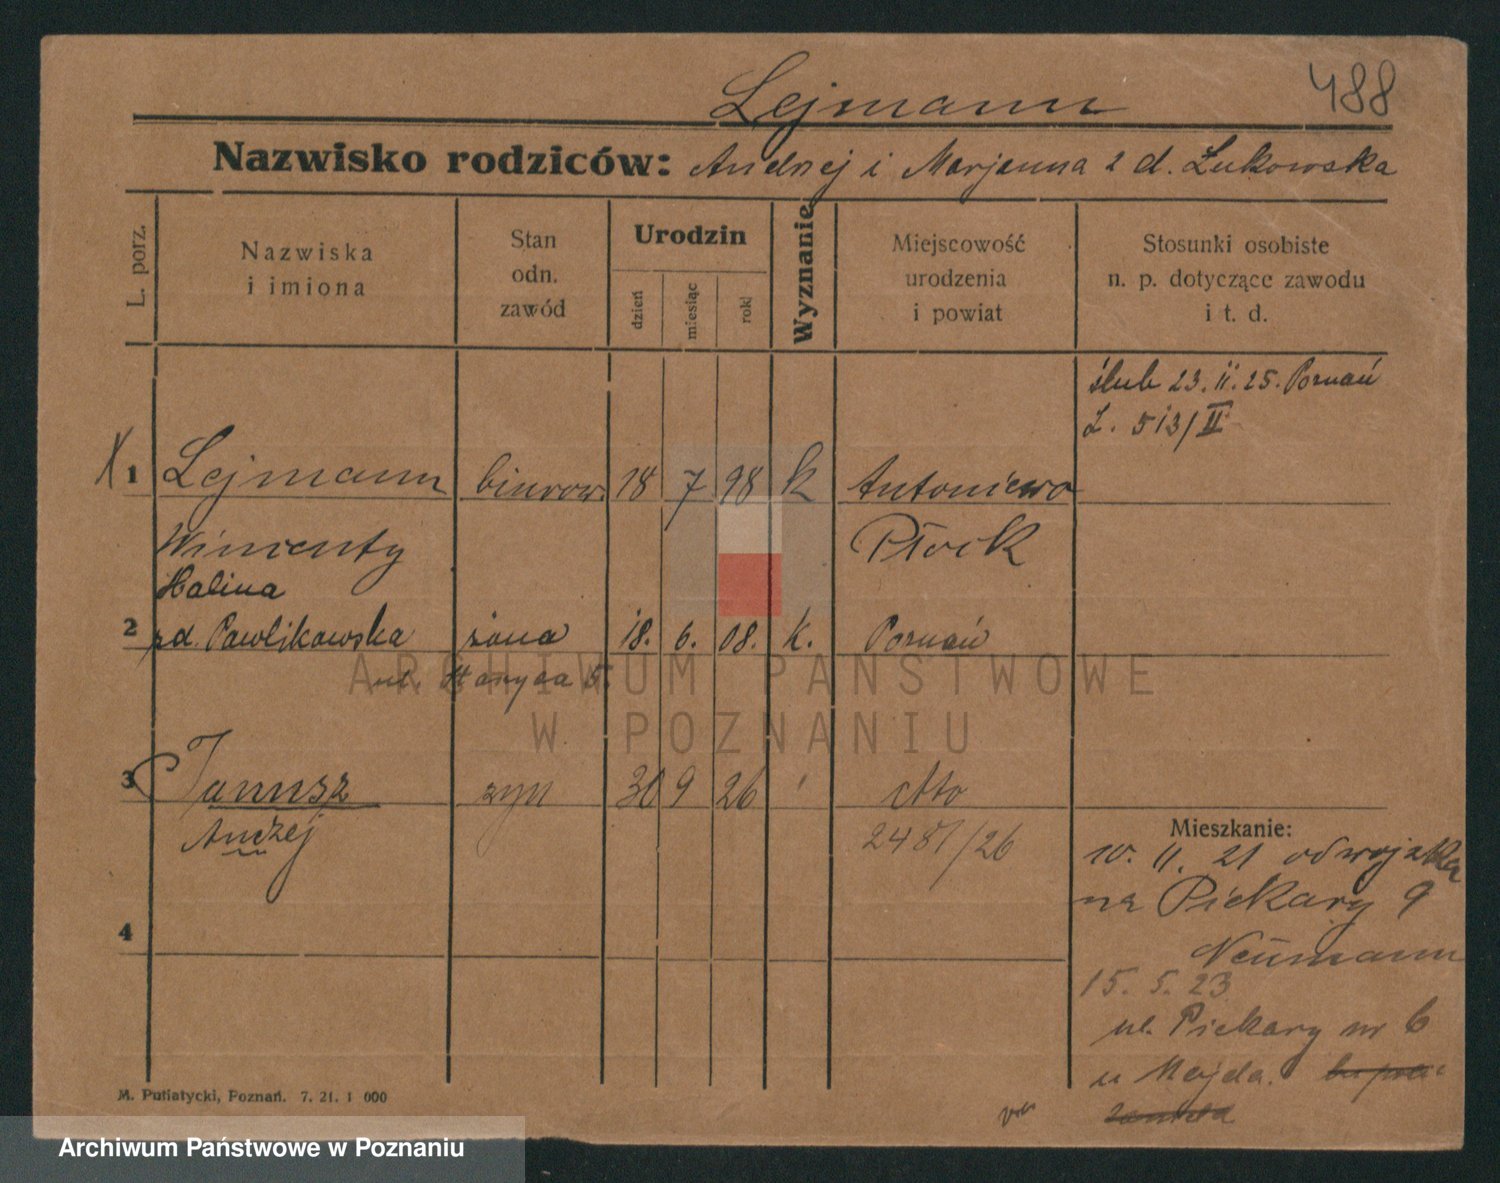 488
Lejmann
Nazwisko rodziców: Andrzej i Marjanna z d. Łukowska
L. porz.
Nazwiska
i imiona
Stan
odn.
zawód
Urodzin
dzień
miesiąc
rok
Wyznanie
Miejscowość
urodzenia
i powiat
Stosunki osobiste
n. p. dotyczące zawodu
i t. d.
ślub 23. II. 25. Poznań
L. 513/II
X 1 Lejmann biurow. 18 7 98 k Antoniewo
Wincenty Płock
Halina
2 zd. Pawlikowska żona 18. 6. 08. k. Poznań
ul. 5.
3 Janusz syn 30 9 26 dto
Andżej 2481/26
4
Mieszkanie:
10. II. 21 od wojska
na Piekary 9
Neümann
15. 5. 23
ul. Piekary nr 6
u Majda.
M. Putiatycki, Poznań. 7. 21. 1 000
ARCHIWUM PAŃSTWOWE
W POZNANIU
Archiwum Państwowe w Poznaniu